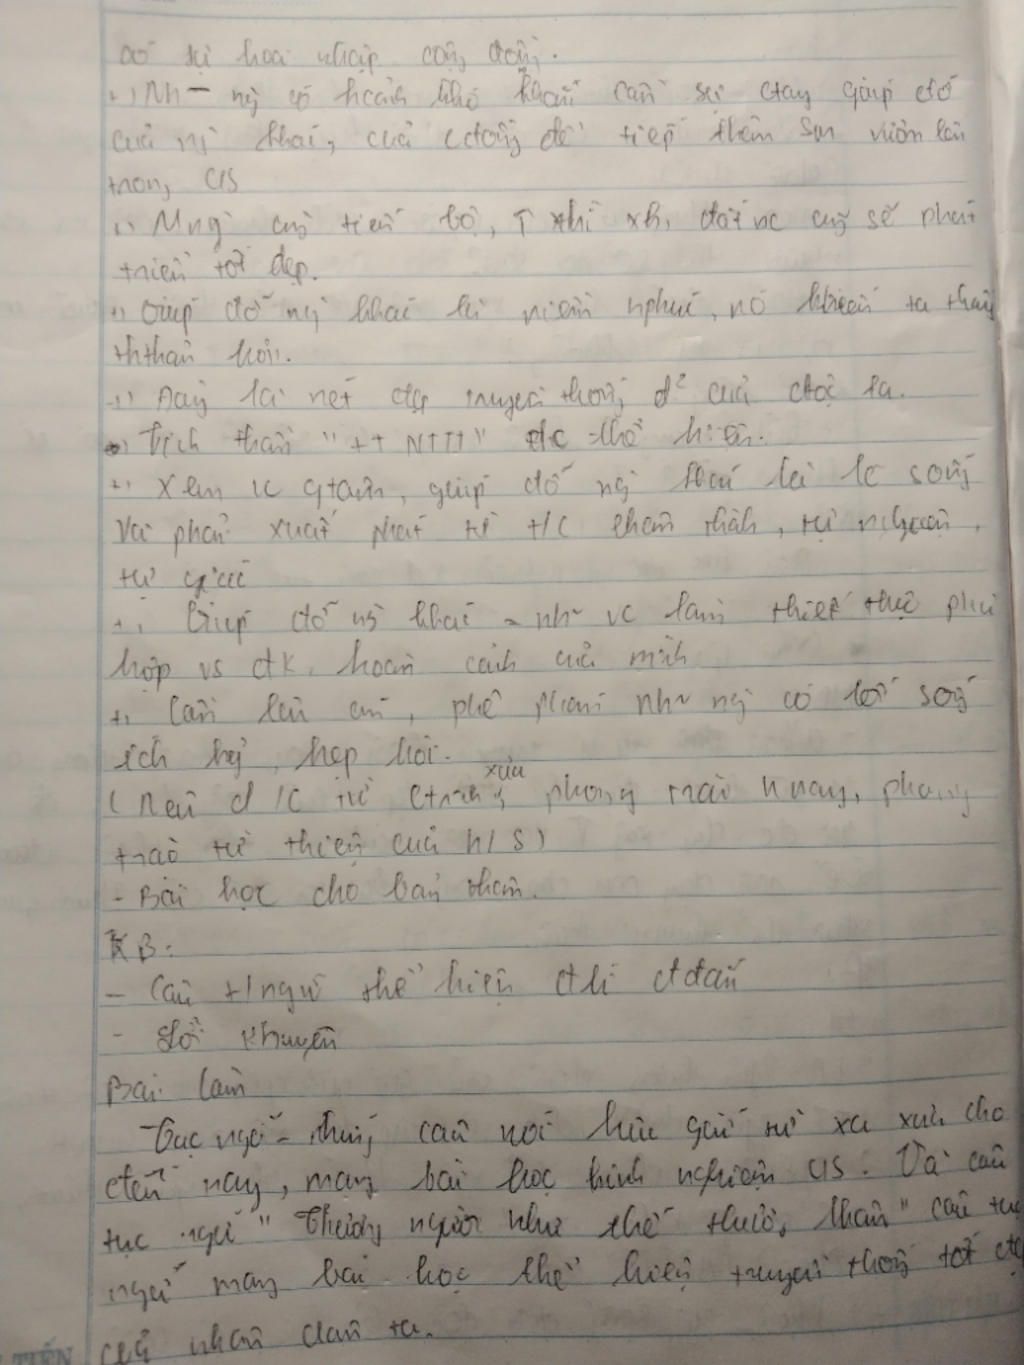 có sự hoà nhập cộng đồng.
+) Nh~ ng có hoàn khó khăn cần sự ctay giúp đỡ
của ng khác, của cđồng để tiếp thêm sm vươn lên
trong c/s
+) Mng cùng tiến bộ, ↑ thì xh, đất nc cũg sẽ phát
triển tốt đẹp.
+) Giúp đỡ ng khác là niềm hphúc, nó khiến ta thấy
th thản hơn.
+) Đây là nét đẹp truyền thống đ² của dtộc ta.
+) Tinh thần "TTNTTT" đc thể hiện.
+) Xem vc qtâm, giúp đỡ ng khác là lẽ sống
Và phải xuất phát từ t/c chân thành, tự nguyện,
tự giác
+) Giúp đỡ ng khác = nh~ vc làm thiết thực phù
hợp vs đk, hoàn cảnh của mình
+) Cần lên án, phê phán nh~ ng có lối sống
ích kỷ, hẹp hòi.
(Nêu d/c từ xưa, phong trào h nay, phong
trào từ thiện của h/s)
- Bài học cho bản thân.
KB:
- Câu t/ngữ thể hiện đlí đđắn
- Lời khuyên
Bài làm
Tục ngữ - những câu nói lưu giữ từ xa xưa cho
đến nay, mang bài học kinh nghiệm c/s. Và câu
tục ngữ "Thương người như thể thương thân" câu tục
ngữ mang bài học thể hiện truyền thống tốt đẹp
của nhân dân ta.
TIẾN